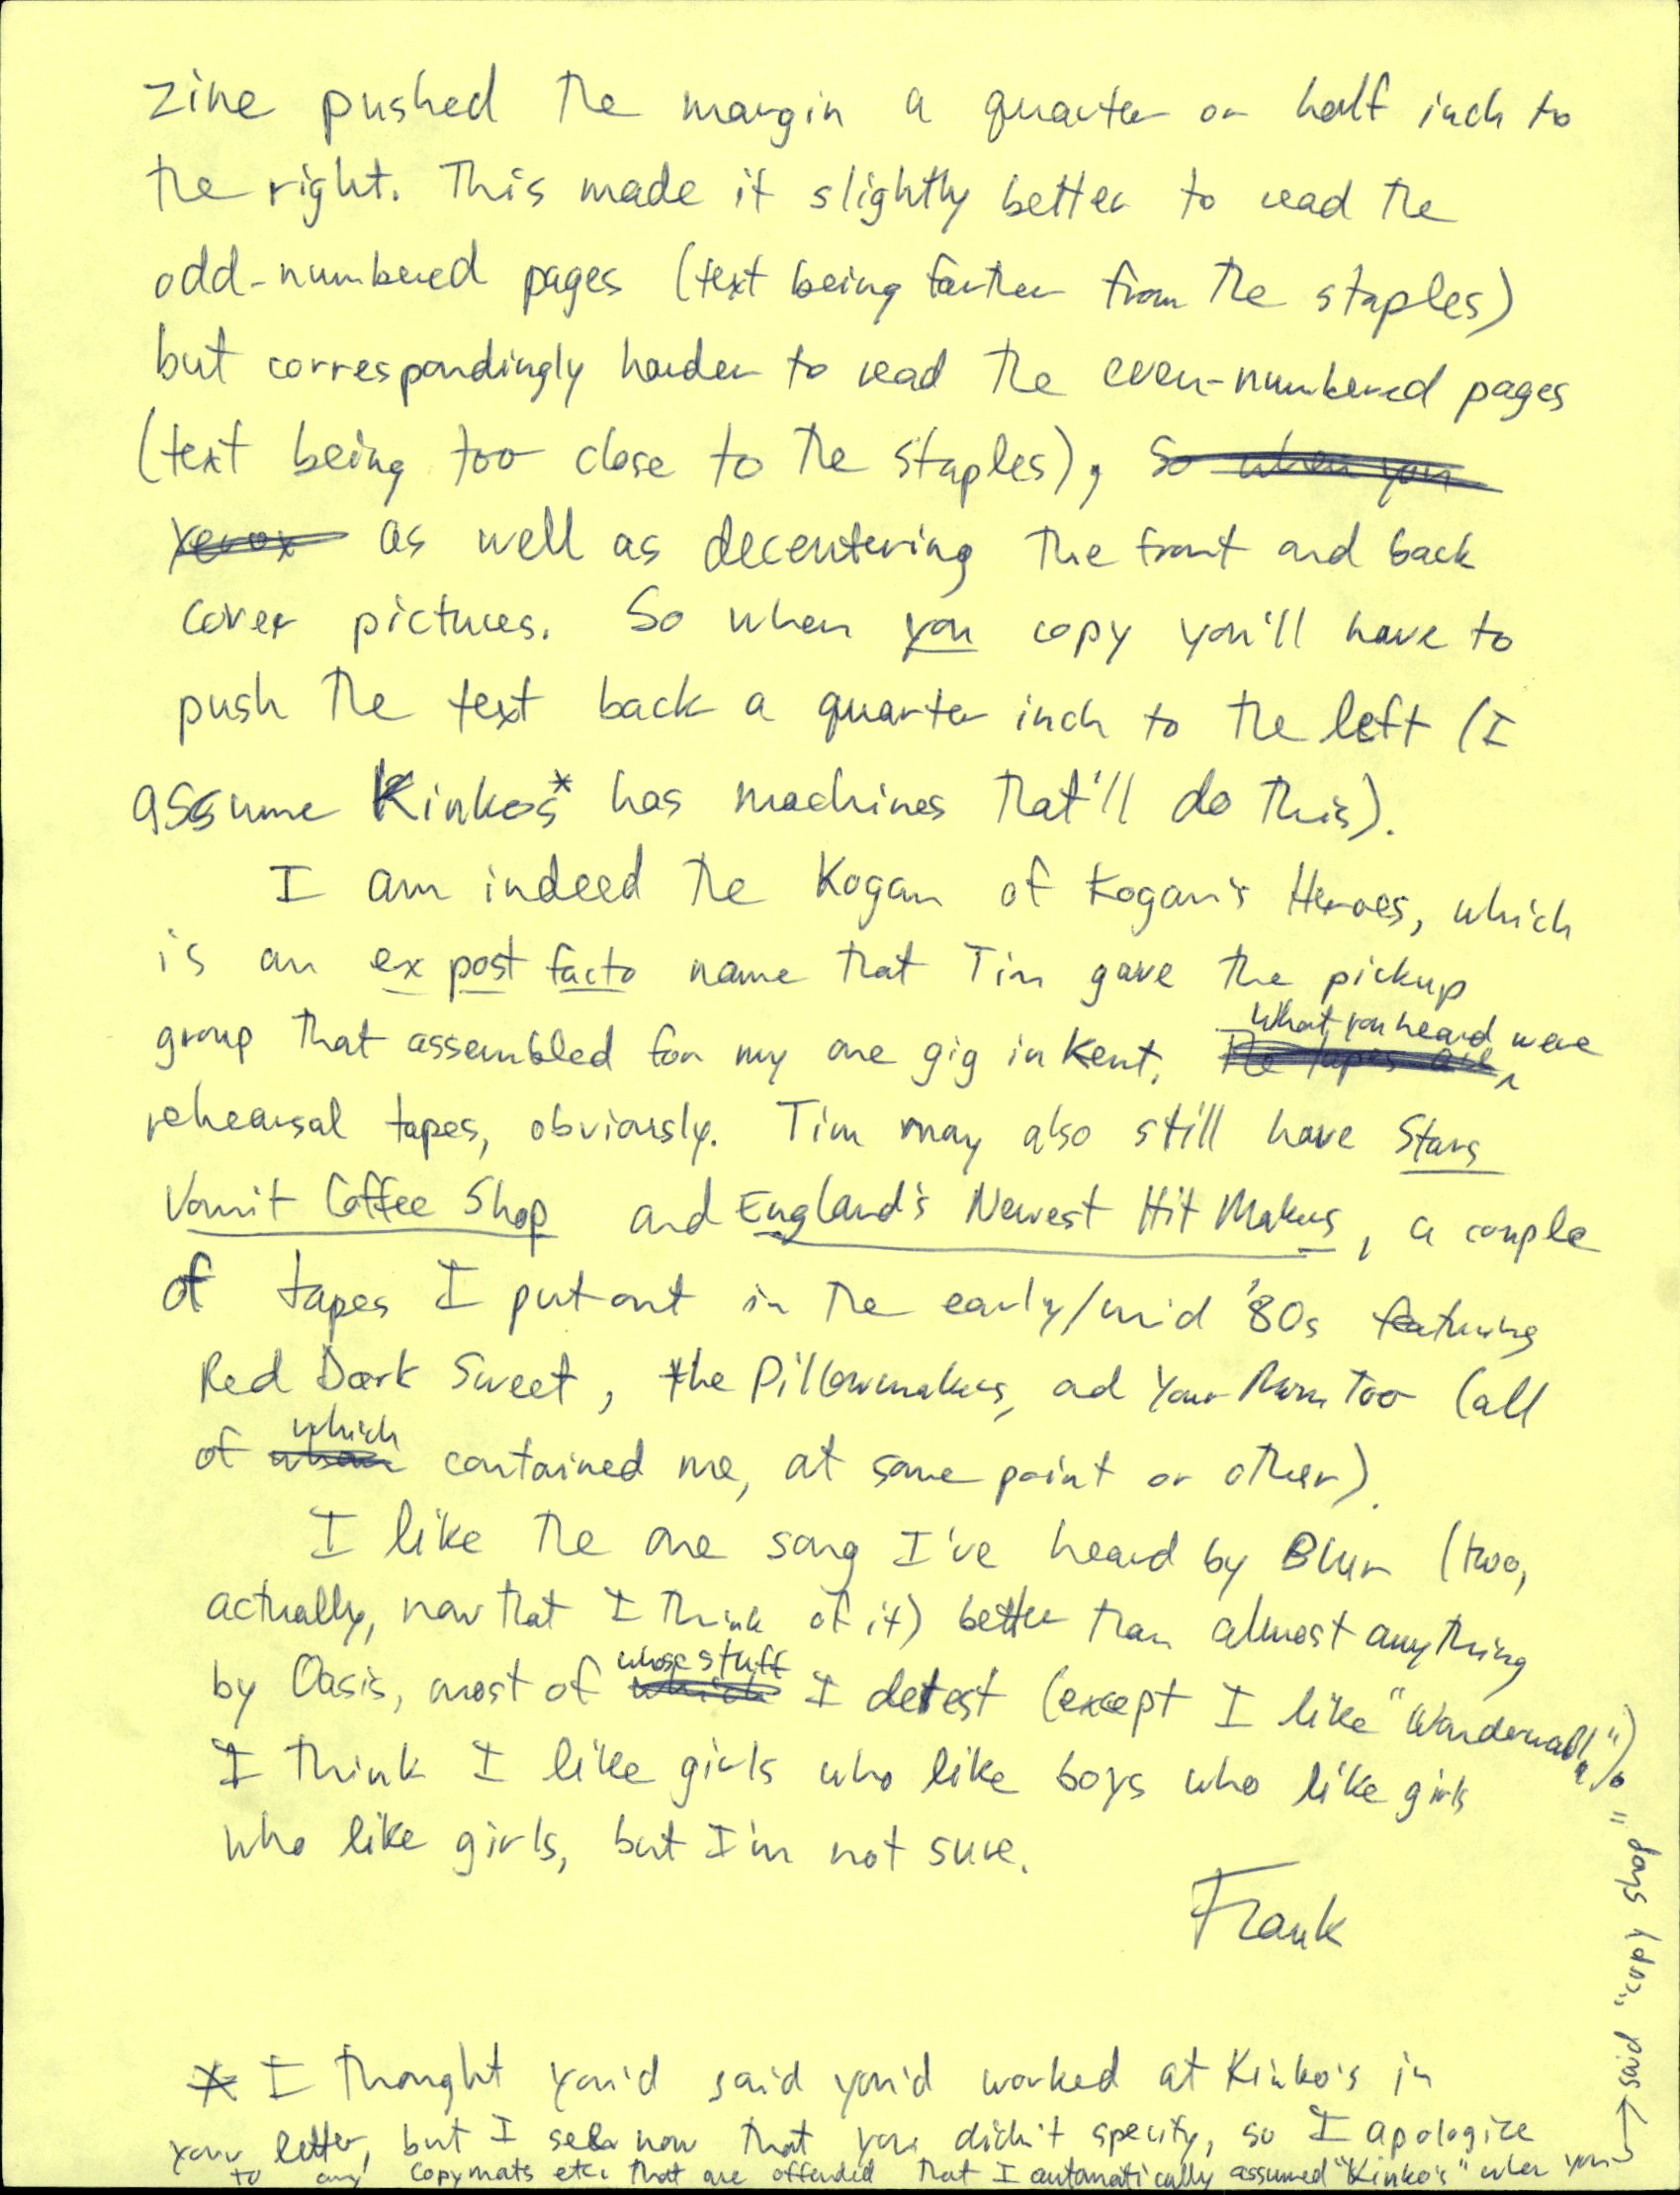 zine pushed the margin a quarter or half inch to
the right. This made it slightly better to read the
odd-numbered pages (text being farther from the staples)
but correspondingly harder to read the even-numbered pages
(text being too close to the staples), So when you
xerox as well as decentering the front and back
cover pictures. So when you copy you'll have to
push the text back a quarter inch to the left (I
assume Kinkos* has machines that'll do this).
I am indeed the Kogan of Kogan's Heroes, which
is an ex post facto name that Tim gave the pickup
group that assembled for my one gig in Kent. The tapes are What you heard were
rehearsal tapes, obviously. Tim may also still have Stars
Vomit Coffee Shop and England's Newest Hit Makers, a couple
of tapes I put out in the early/mid '80s featuring
Red Dark Sweet, the Pillowmakers, ad Your Mom Too (all
of which contained me, at some point or other).
I like the one song I've heard by Blur (two,
actually, now that I think of it) better than almost anything
by Oasis, most of which whose stuff I detest (except I like "Wonderwall").
I think I like girls who like boys who like girls
who like girls, but I'm not sure.
Frank
* I thought you'd said you'd worked at Kinko's in
your letter, but I see now that you didn't specify, so I apologize
to any copymats etc. that are offended that I automatically assumed "Kinko's" when you
→ said "copy shop"